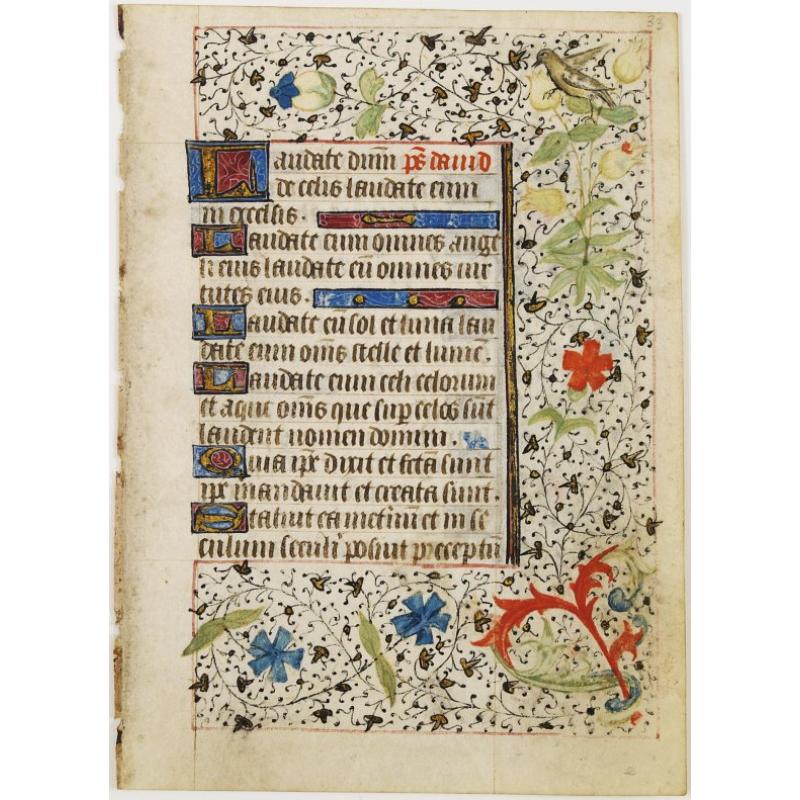 33
Laudate dnm ps david
de celis laudate eum
in excelsis.
Laudate eum omnes ange
li eius laudate eu omnes uir
tutes eius.
Laudate eu sol et luna lau
date eum oms stelle et lume.
Laudate eum celi celorum
et aque oms que sup celos sut
laudent nomen domini.
Quia ipe dixit et fcta sunt
ipe mandauit et creata sunt.
Statuit ea in etnu et in se
culum seculi posuit preceptu